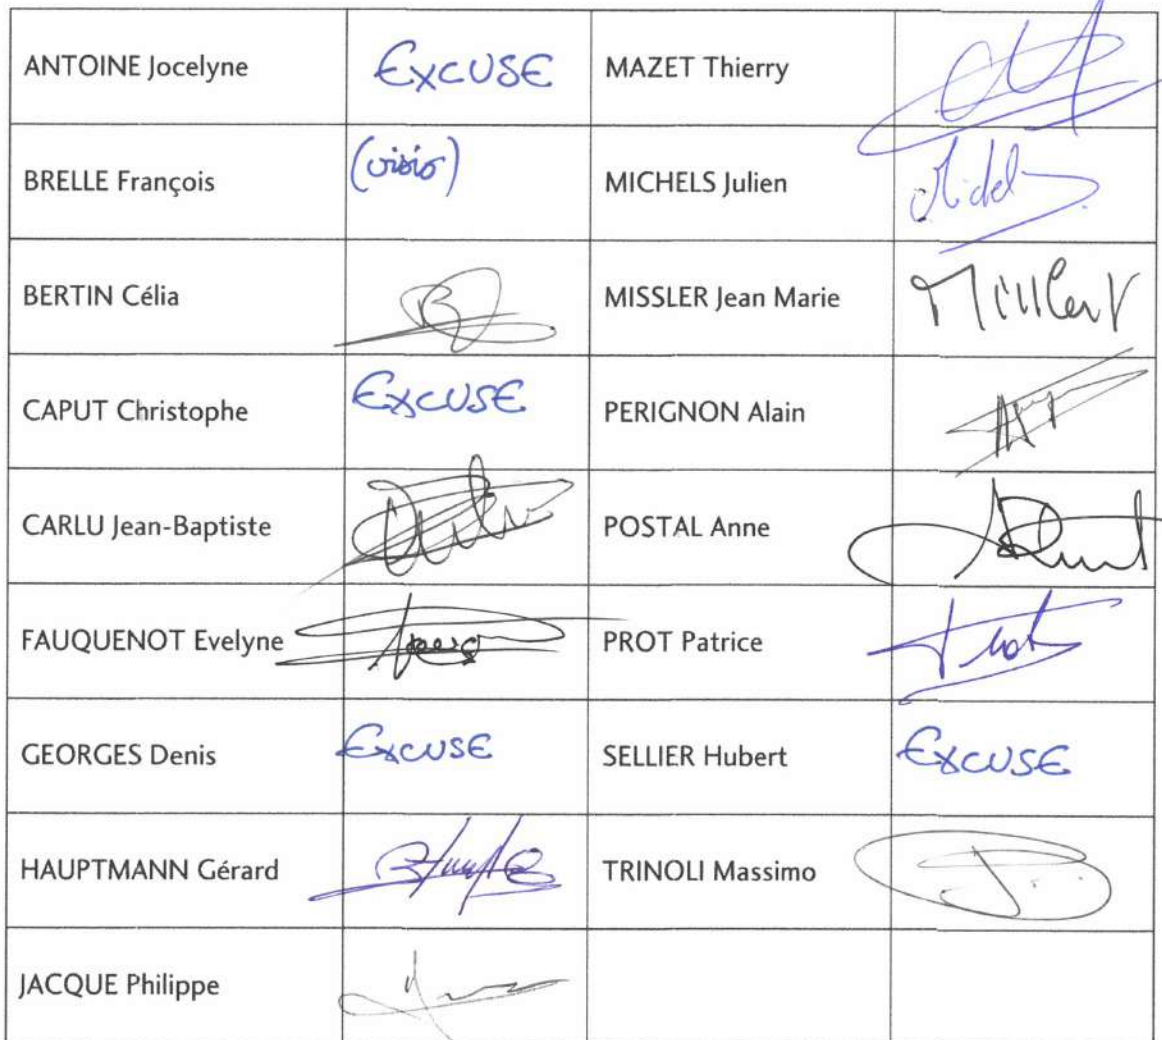 ANTOINE Jocelyne EXCUSE MAZET Thierry
BRELLE François (visio) MICHELS Julien
BERTIN Célia MISSLER Jean Marie
CAPUT Christophe EXCUSE PERIGNON Alain
CARLU Jean-Baptiste POSTAL Anne
FAUQUENOT Evelyne PROT Patrice
GEORGES Denis EXCUSE SELLIER Hubert EXCUSE
HAUPTMANN Gérard TRINOLI Massimo
JACQUE Philippe